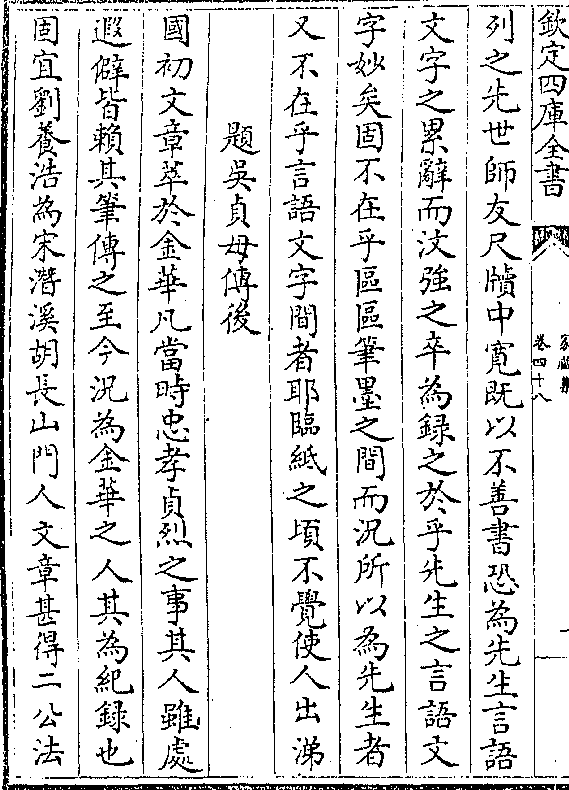 欽定四庫全書
家藏集
卷四十八
列之先世師友尺牘中寛既以不善書恐為先生言語
文字之累辭而汶強之卒為録之於乎先生之言語文
字妙矣固不在乎區區筆墨之間而況所以為先生者
又不在乎言語文字間者耶臨紙之頃不覺使人出涕
題吳貞母傳後
國初文章萃於金華凡當時忠孝貞烈之事其人雖處
遐僻皆賴其筆傳之至今況為金華之人其為紀録也
固宜劉養浩為宋潛溪胡長山門人文章甚得二公法